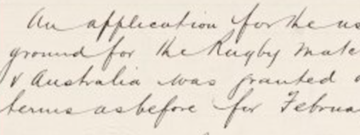 An application for the us
ground for the Rugby Matc
& Australia was granted
terms as before for Februa